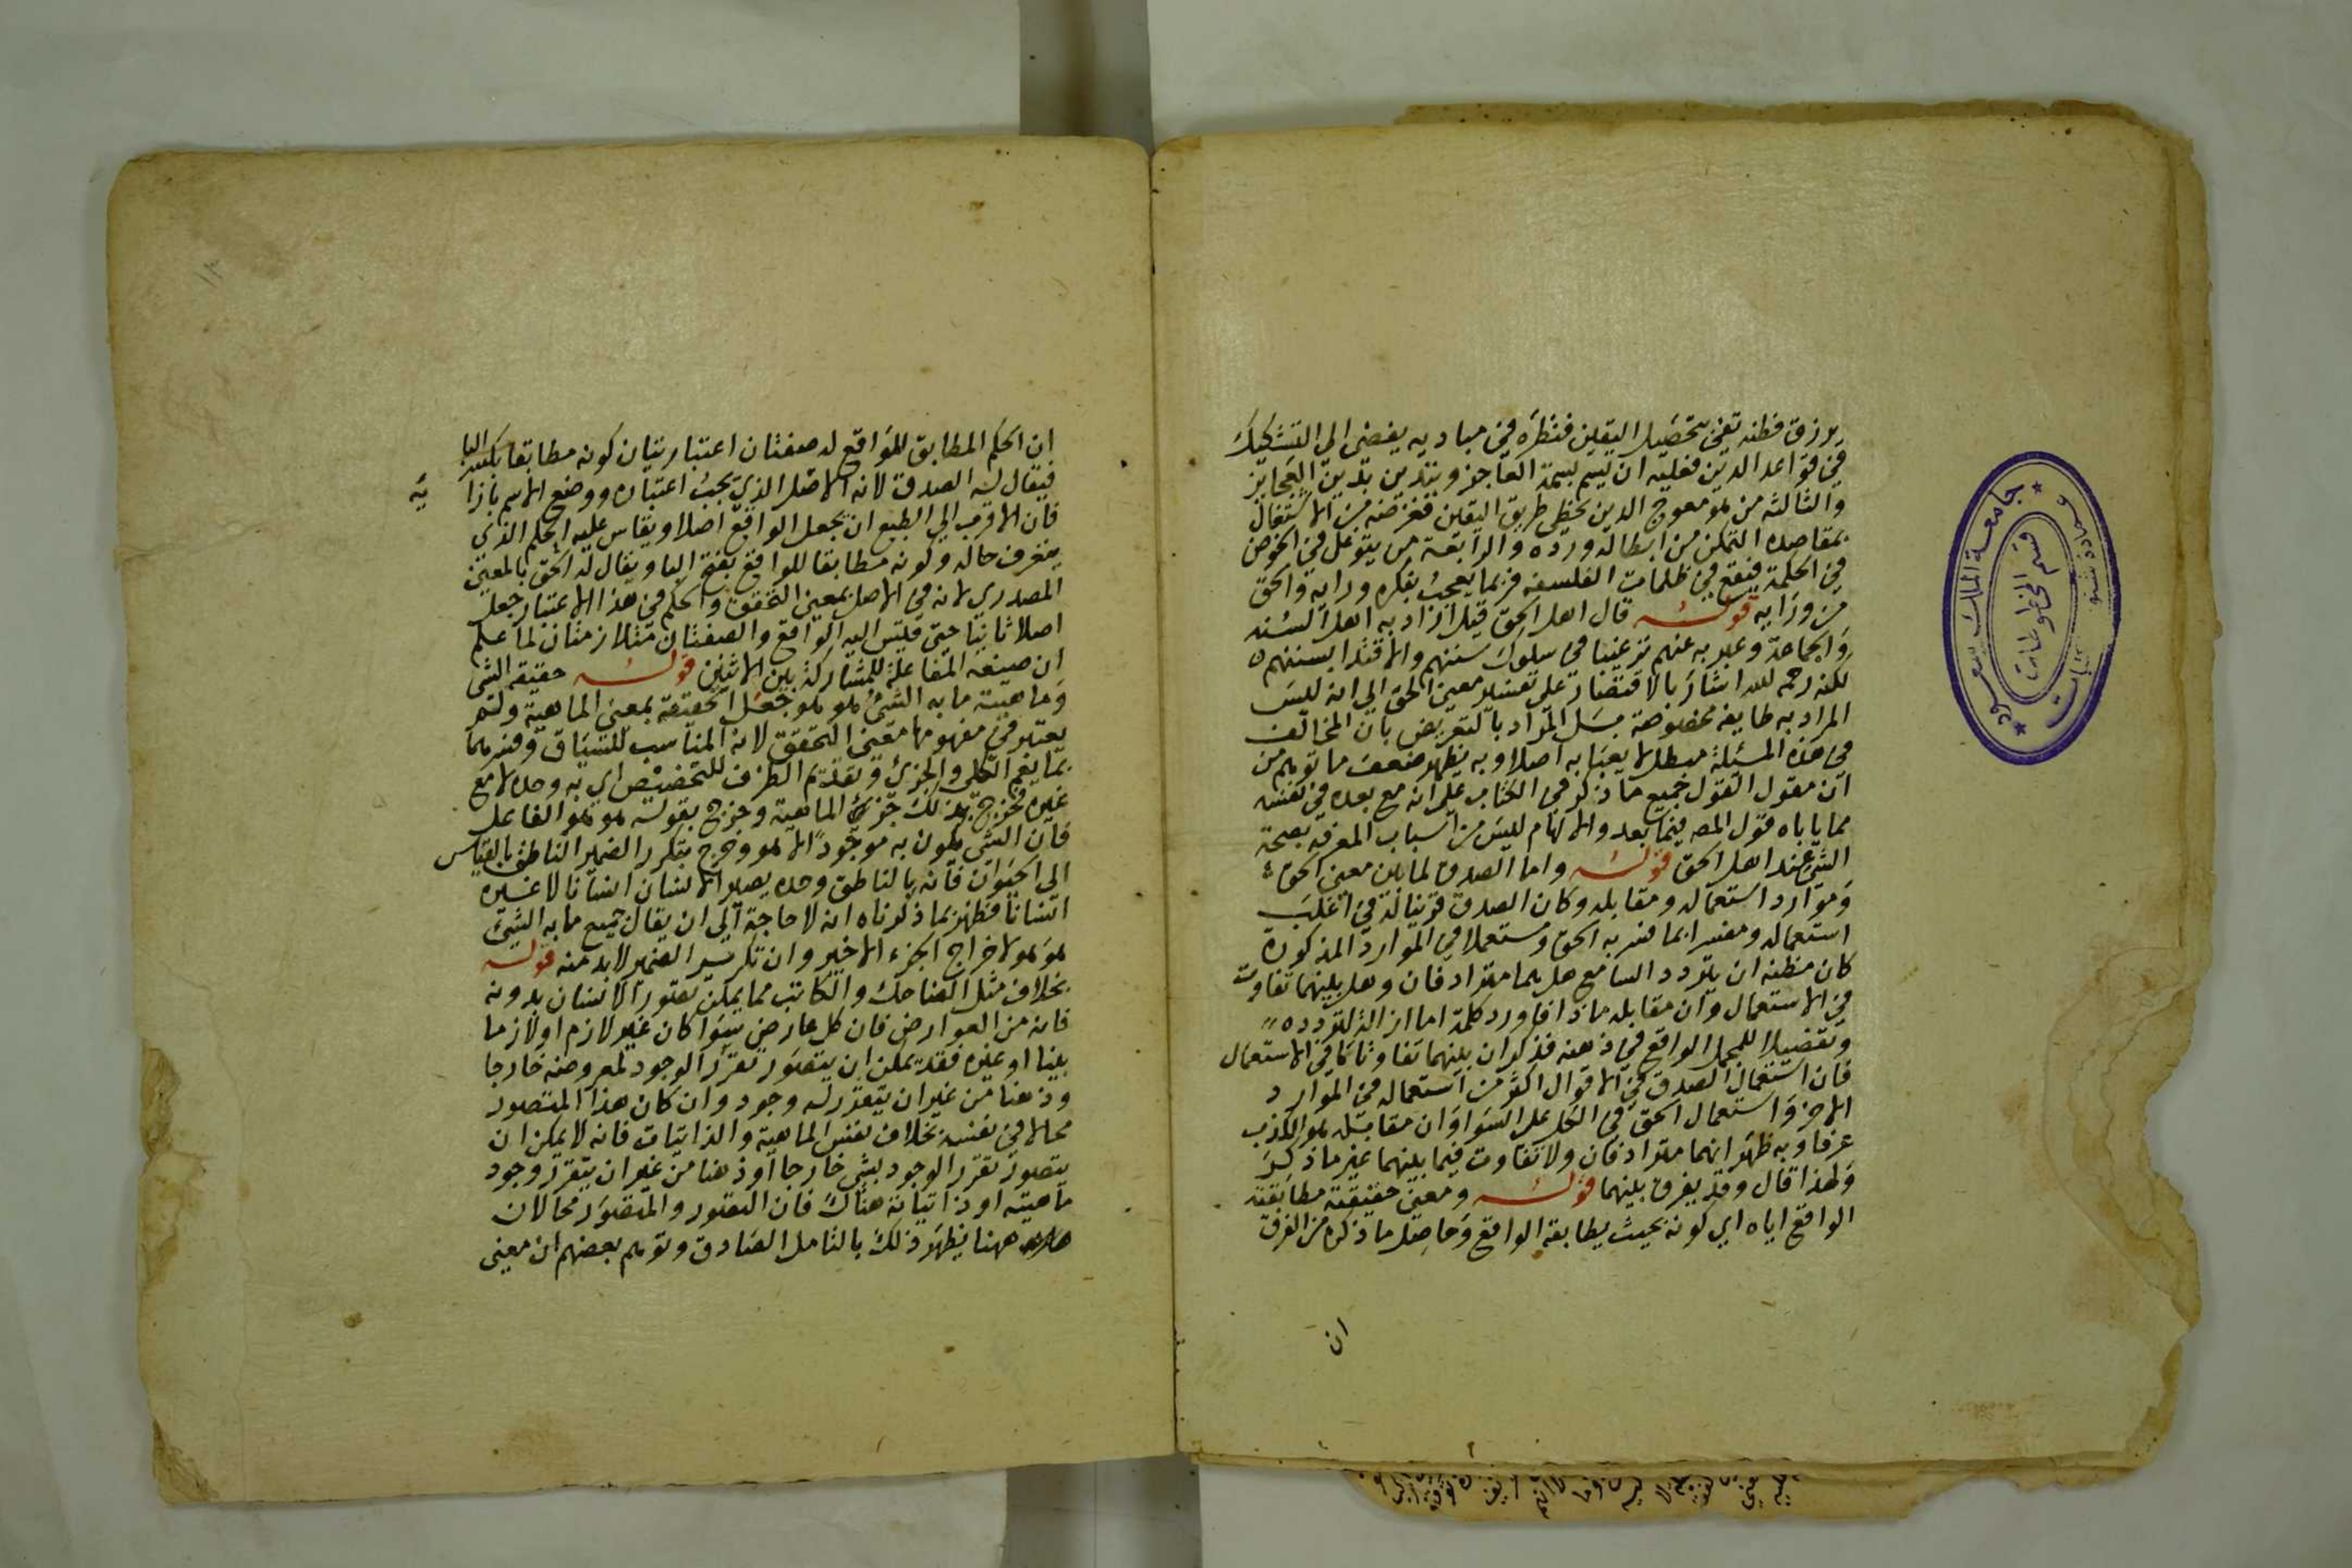 يرزق فطنه تفي بتحصيل اليقين فنظره في مباديه يفضي الى التشكيك
في قواعد الدين فعليه ان يتسم بسمة العاجز ويتدين بدين العجايز
والثالثه من هو معوج الدين يحظى طريق اليقين فغرضه من الاشتغال
بمقاصده التمكن من ابطاله ورده والرابعة من يتوغل في الخوض
في الحكمة فيقع في ظلمات الفلسفه فربما يعجب بفكره ورايه والحق
من ورايه قوله قال اهل الحق قيل اراد به اهل السنه
والجماعة وعبر به عنهم ترغيبا في سلوك سننهم والاقتدا بسننهم
لكنه رحمه الله اشار بالاقتصار على تفسير معنى الحق الى انه ليس
المراد به طايفه مخصوصة بل المراد بالتعريض بان المخالف
في هذه المسئلة مبطل لا يعبا به اصلا وبه يظهر ضعف ما توهم من
ان مقول القول جميع ما ذكر في الكتاب على انه مع بعده في نفسه
مما ياباه قول المص فيما بعد والالهام ليس من اسباب المعرفه بصحة
الشي عند اهل الحق قوله واما الصدق لما بين معنى الحق
وموارد استعماله ومقابله وكان الصدق قرينا له في اغلب
استعماله ومفسرا بما فسر به الحق ومستعملا في الموارد المذكورة
كان مظنه ان يتردد السامع هل هما مترادفان وهل بينهما تفاوت
في الاستعمال وان مقابله ماذا فاورد كلمة اما ازالة لتردده
وتفصيلا للمجمل الواقع في ذهنه فذكر ان بينهما تفاوتا ما في الاستعمال
فان استعمال الصدق في الاقوال اكثر من استعماله في الموارد
الاخر واستعمال الحق في الكل على السوا وان مقابله هو الكذب
عرفا وبه ظهر انهما مترادفان ولا تفاوت فيما بينهما غير ما ذكر
ولهذا قال وقد يفرق بينهما قوله ومعنى حقيقته مطابقة
الواقع اياه اي كونه بحيث يطابقه الواقع وحاصل ما ذكره من الفرق
ان
ان الحكم المطابق للواقع له صفتان اعتباريتان كونه مطابقا بكسر البا
فيقال له الصدق لانه الاصل الذي يجب اعتباره ووضع الاسم بازا
يه
فان الاقرب الى الطبع ان يجعل الواقع اصلا ويقاس عليه الحكم الذي
يتعرف حاله وكونه مطابقا للواقع بفتح البا ويقال له الحق بالمعنى
المصدري لانه في الاصل بمعنى التحقق والحكم في هذا الاعتبار جعل
اصلا ثانيا حتى قيس اليه الواقع والصفتان متلازمتان لما علم
ان صيغة المفاعلة للمشاركة بين الاثنين قوله حقيقه الشي
وماهيته ما به الشي هو هو جعل الحقيقة بمعنى الماهية ولم
يعتبر في مفهومها معنى التحقق لانه المناسب للسياق وفسرهما
بما يعم الكلي والجزئ وتقديم الظرف للتخصيص اي به وحده لا مع
غيره فخرج بذلك جزئ الماهية وخرج بقوله هو هو الفاعل
فان الشي يكون به موجودا لا هو وخرج بتكرر الضمير الناطق بالقياس
الى الحيوان فانه بالناطق وحده يصير الانسان انسانا لا غيره
انسانا فظهر بما ذكرناه انه لا حاجة الى ان يقال جميع ما به الشئ
هو هو لاخراج الجزء الاخير وان تكرير الضمير لابد منه قوله
بخلاف مثل الضاحك والكاتب مما يمكن تصور الانسان بدونه
فانه من العوارض فان كل عارض سوا كان غير لازم او لازما
بينا او غيره فقد يمكن ان يتصور تقرر الوجود لمعروضه خارجا
وذهنا من غير ان يتقرر له وجود وان كان هذا المتصور
محالا في نفسه بخلاف نفس الماهية والذاتيات فانه لا يمكن ان
يتصور تقرر الوجود بشي خارجا او ذهنا من غير ان يتقرر وجود
ماهيته او ذاتياته هناك فان التصور والمتصور محالان
ههنا يظهر ذلك بالتامل الصادق وتوهم بعضهم ان معنى
جامعة الملك سعود
قسم المخطوطات